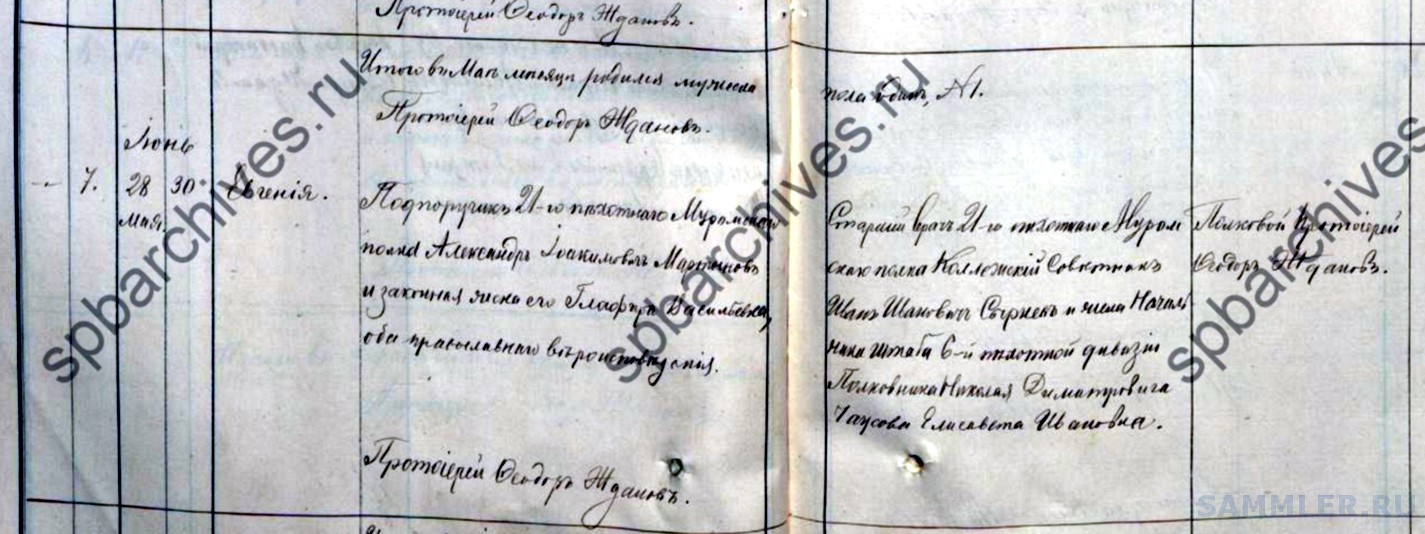 Протоіерей Ѳеодоръ Ждановъ.
Итого въ Маѣ мѣсяцѣ родился мужескаго
пола одинъ, №1.
Протоіерей Ѳеодоръ Ждановъ.
Іюнь
7. 28 30 Евгенія.
Мая.
Подпоручикъ 21-го пѣхотнаго Муромскаго
полка Александръ Іоакимовъ Мартыновъ
и законная жена его Глафира Васильевна,
оба православнаго вѣроисповѣданія.
Старшій врачъ 21-го пѣхотнаго Муром
скаго полка Коллежскій Совѣтникъ
Иванъ Ивановичъ и жена Началь
ника штаба 6-й пѣхотной дивизіи
Полковника Николая Димитровича
Чаусова Елисавета Ивановна.
Полковой Протоіерей
Ѳеодоръ Ждановъ.
Протоіерей Ѳеодоръ Ждановъ.
spbarchives.ru
spbarchives.ru
spbarchives
SAMMLER.RU